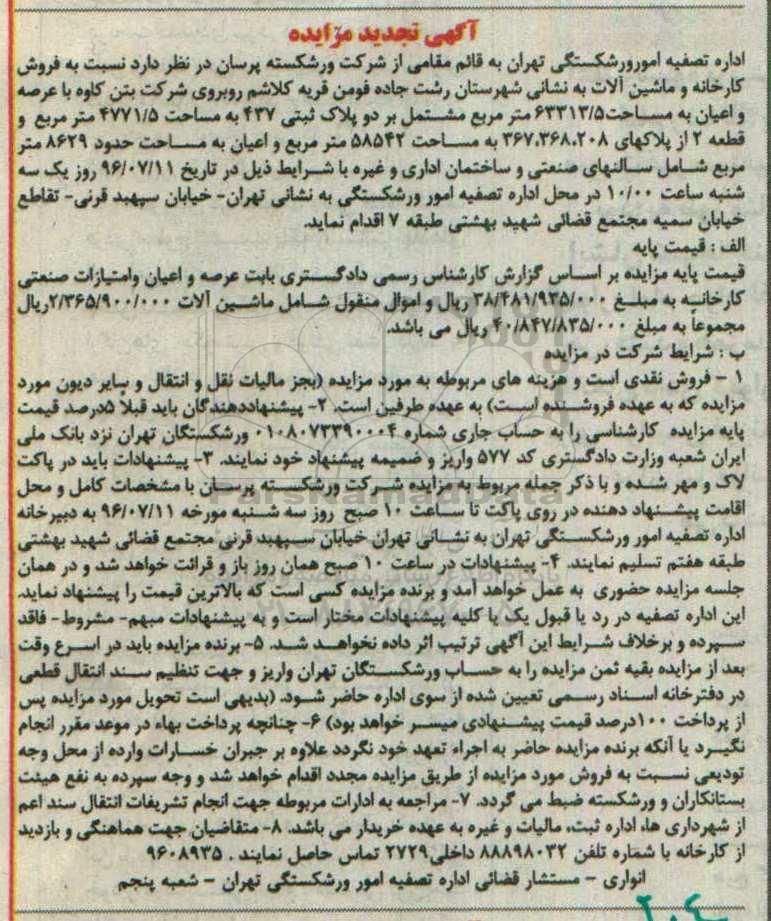 آگهی تجدید مزایده
اداره تصفیه امورورشکستگی تهران به قائم مقامی از شرکت ورشکسته پرسان در نظر دارد نسبت به فروش
کارخانه و ماشین آلات به نشانی شهرستان رشت جاده فومن قریه کلاشم روبروی شرکت بتن کاوه با عرصه
و اعیان به مساحت۶۳۳۱۳/۵ متر مربع مشتمل بر دو پلاک ثبتی ۴۳۷ به مساحت ۴۷۷۱/۵ متر مربع و
قطعه ۲ از پلاکهای ۳۶۷،۳۶۸،۲۰۸ به مساحت ۵۸۵۴۲ متر مربع و اعیان به مساحت حدود ۸۶۲۹ متر
مربع شامل سالنهای صنعتی و ساختمان اداری و غیره با شرایط ذیل در تاریخ ۹۶/۰۷/۱۱ روز یک سه
شنبه ساعت ۱۰/۰۰ در محل اداره تصفیه امور ورشکستگی به نشانی تهران- خیابان سپهبد قرنی- تقاطع
خیابان سمیه مجتمع قضائی شهید بهشتی طبقه ۷ اقدام نماید.
الف : قیمت پایه
قیمت پایه مزایده بر اساس گزارش کارشناس رسمی دادگستری بابت عرصه و اعیان وامتیازات صنعتی
کارخانه به مبلغ ۳۸/۴۸۱/۹۳۵/۰۰۰ ریال و اموال منقول شامل ماشین آلات ۲/۳۶۵/۹۰۰/۰۰۰ریال
مجموعاً به مبلغ ۴۰/۸۴۷/۸۳۵/۰۰۰ ریال می باشد.
ب : شرایط شرکت در مزایده
۱ - فروش نقدی است و هزینه های مربوطه به مورد مزایده (بجز مالیات نقل و انتقال و سایر دیون مورد
مزایده که به عهده فروشنده است) به عهده طرفین است. ۲- پیشنهاددهندگان باید قبلاً ۵درصد قیمت
پایه مزایده کارشناسی را به حساب جاری شماره ۰۱۰۸۰۷۳۳۹۰۰۰۴ ورشکستگان تهران نزد بانک ملی
ایران شعبه وزارت دادگستری کد ۵۷۷ واریز و ضمیمه پیشنهاد خود نمایند. ۳- پیشنهادات باید در پاکت
لاک و مهر شده و با ذکر جمله مربوط به مزایده شرکت ورشکسته پرسان با مشخصات کامل و محل
اقامت پیشنهاد دهنده در روی پاکت تا ساعت ۱۰ صبح روز سه شنبه مورخه ۹۶/۰۷/۱۱ به دبیرخانه
اداره تصفیه امور ورشکستگی تهران به نشانی تهران خیابان سپهبد قرنی مجتمع قضائی شهید بهشتی
طبقه هفتم تسلیم نمایند. ۴- پیشنهادات در ساعت ۱۰ صبح همان روز باز و قرائت خواهد شد و در همان
جلسه مزایده حضوری به عمل خواهد آمد و برنده مزایده کسی است که بالاترین قیمت را پیشنهاد نماید.
این اداره تصفیه در رد یا قبول یک یا کلیه پیشنهادات مختار است و به پیشنهادات مبهم- مشروط- فاقد
سپرده و برخلاف شرایط این آگهی ترتیب اثر داده نخواهد شد. ۵- برنده مزایده باید در اسرع وقت
بعد از مزایده بقیه ثمن مزایده را به حساب ورشکستگان تهران واریز و جهت تنظیم سند انتقال قطعی
در دفترخانه اسناد رسمی تعیین شده از سوی اداره حاضر شود. (بدیهی است تحویل مورد مزایده پس
از پرداخت ۱۰۰درصد قیمت پیشنهادی میسر خواهد بود) ۶- چنانچه پرداخت بهاء در موعد مقرر انجام
نگیرد یا آنکه برنده مزایده حاضر به اجراء تعهد خود نگردد علاوه بر جبران خسارات وارده از محل وجه
تودیعی نسبت به فروش مورد مزایده از طریق مزایده مجدد اقدام خواهد شد و وجه سپرده به نفع هیئت
بستانکاران و ورشکسته ضبط می گردد. ۷- مراجعه به ادارات مربوطه جهت انجام تشریفات انتقال سند اعم
از شهرداری ها، اداره ثبت، مالیات و غیره به عهده خریدار می باشد. ۸- متقاضیان جهت هماهنگی و بازدید
از کارخانه با شماره تلفن ۸۸۸۹۸۰۳۲ داخلی۲۷۲۹ تماس حاصل نمایند . ۹۶۰۸۹۳۵
انواری - مستشار قضائی اداره تصفیه امور ورشکستگی تهران - شعبه پنجم
ParsNamadData